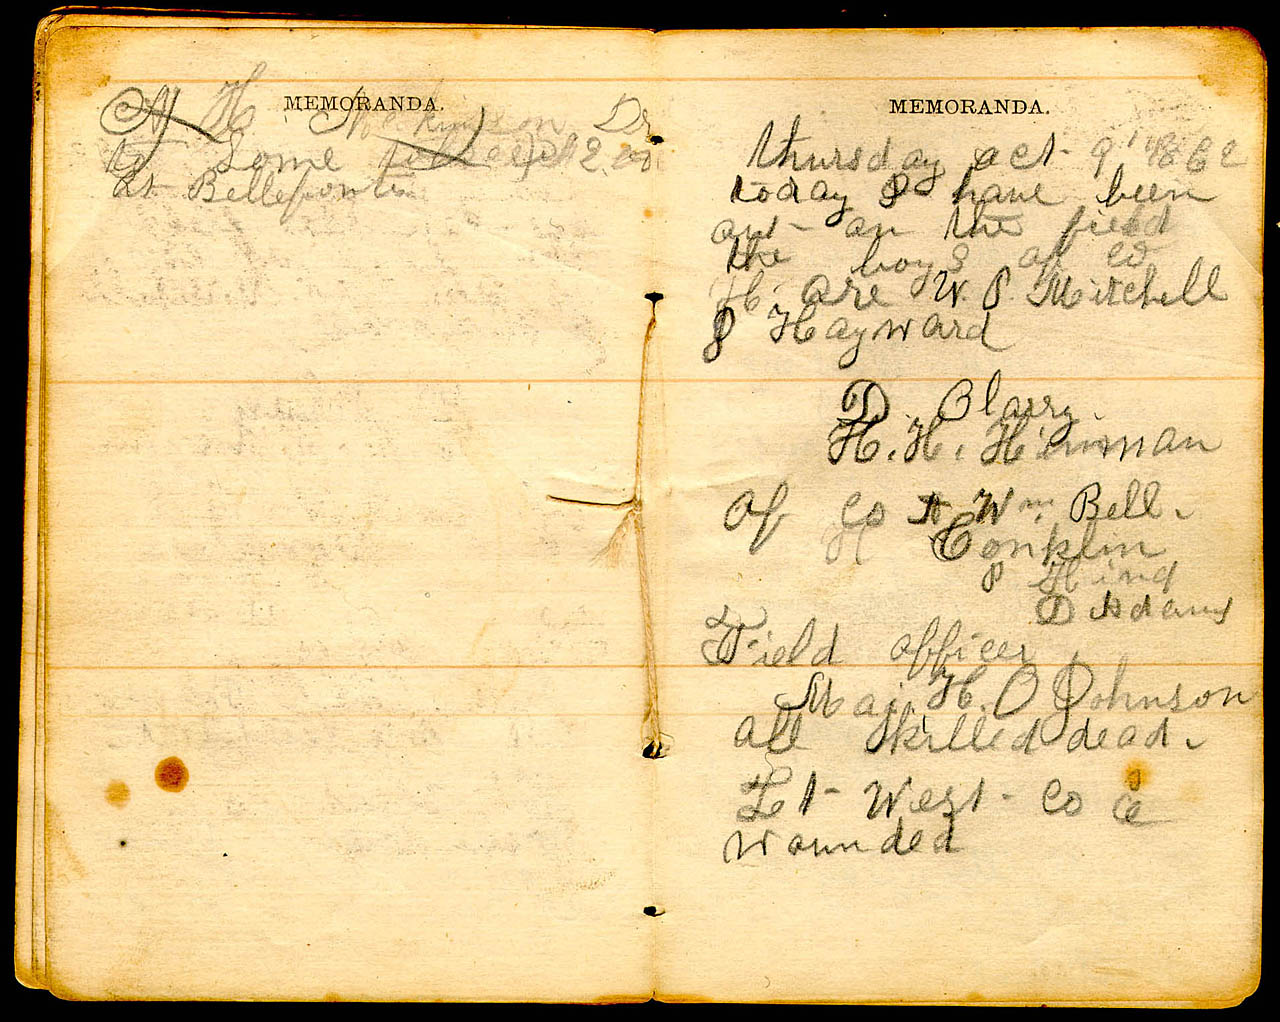 MEMORANDA.
H. Dr
to Some
at Bellefont
MEMORANDA.
thursday act 9 1862
today I have been
out on the field
the boys of co
H. are W. P. Mitchell
J Hayward
D. Clarry.
H. H. Hinman
of Co A Wm. Bell.
H Conklin
P King
D Adams
Field officer
Maj. H. O Johnson
all killed dead.
Lt West Co G
wounded